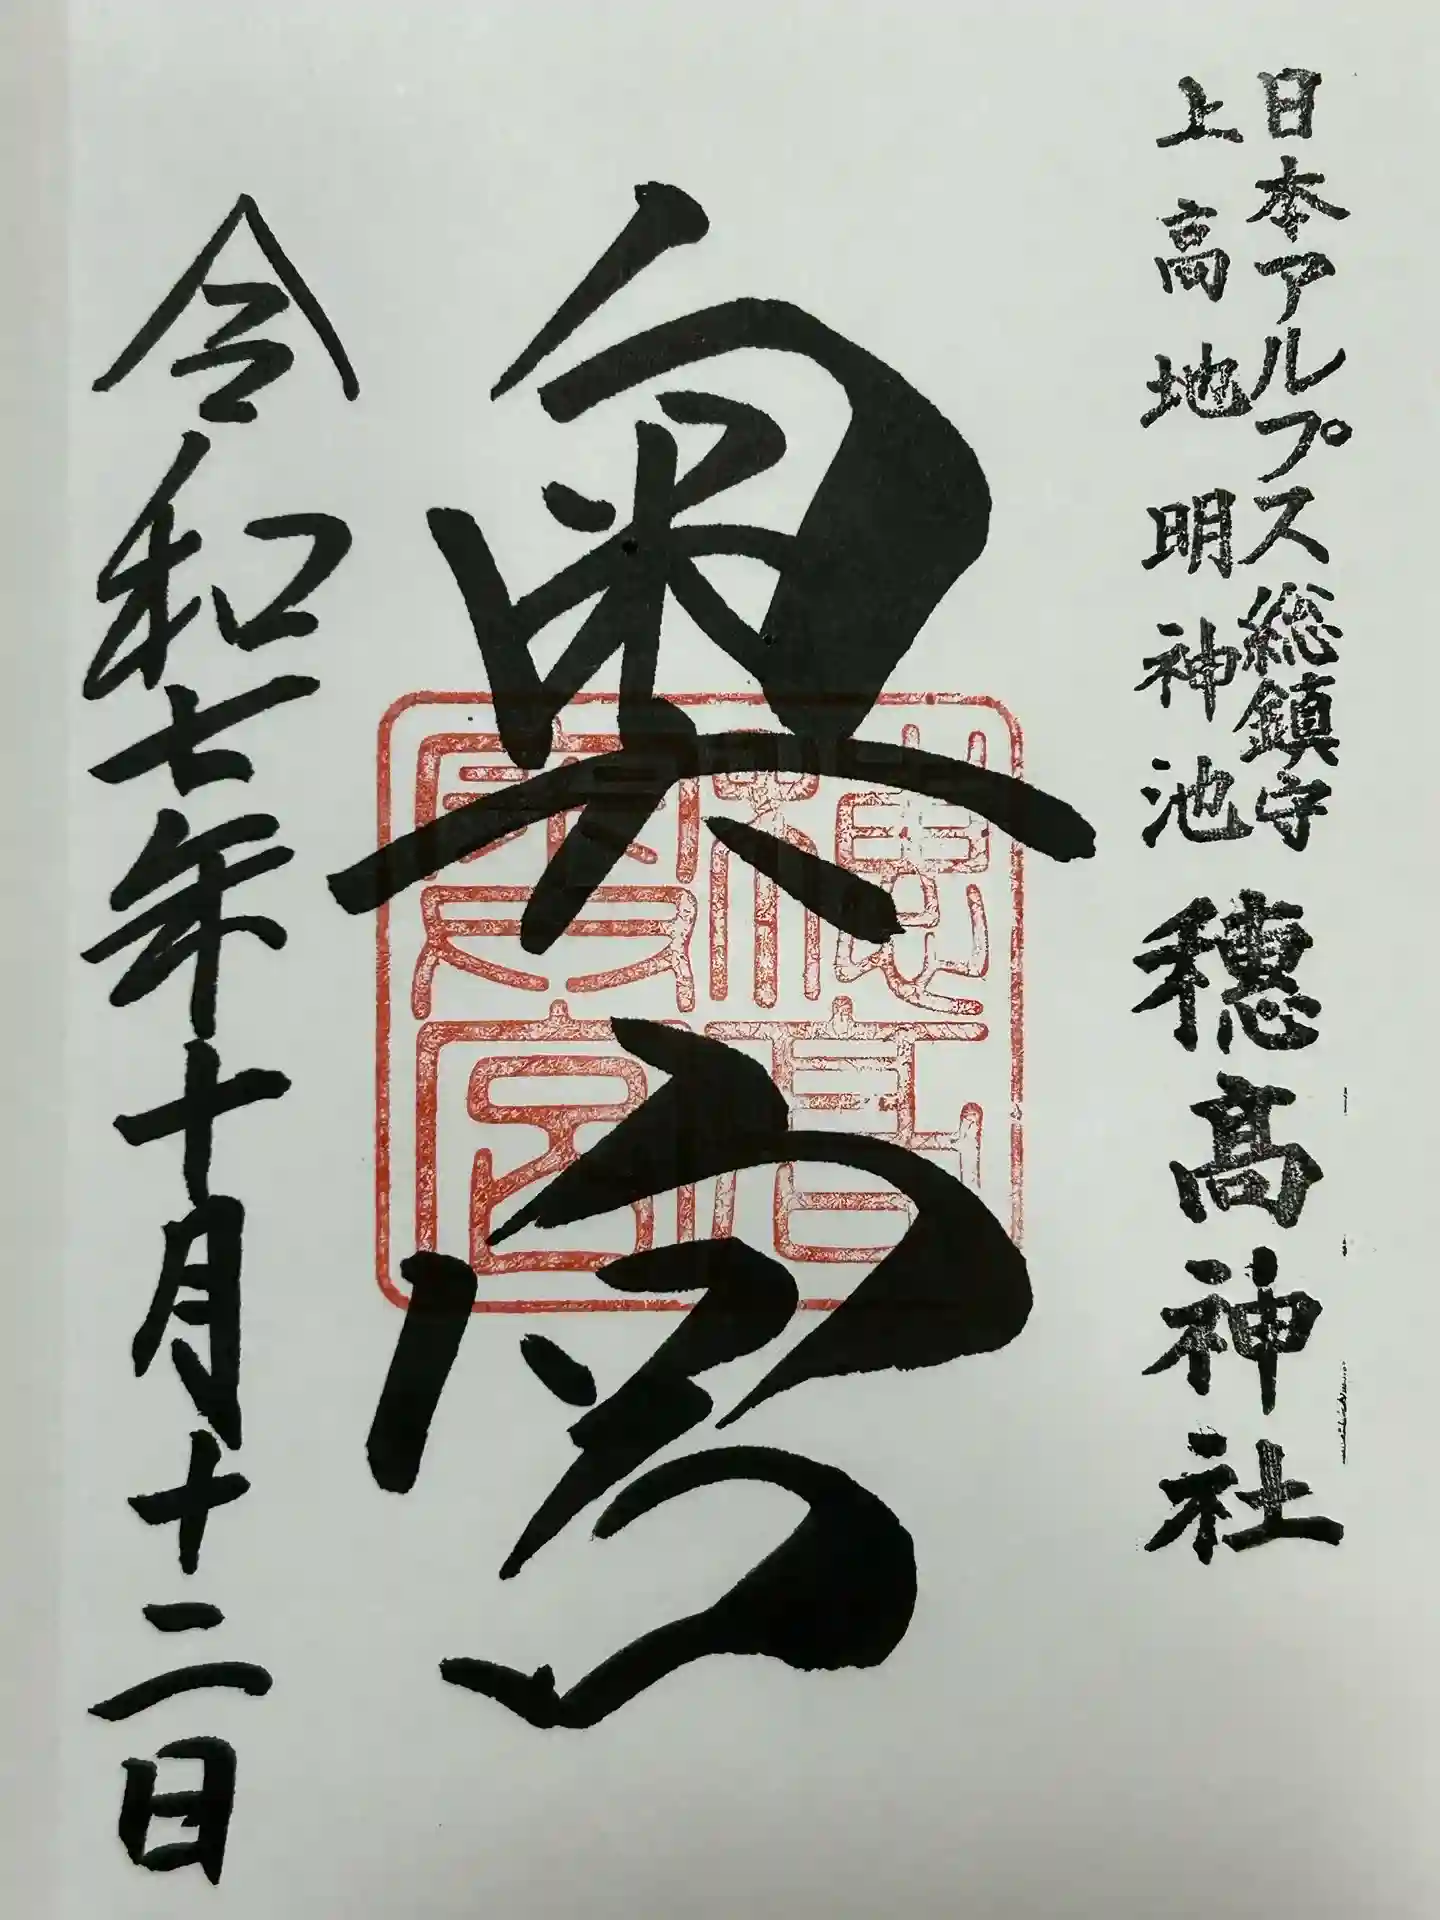 日本アルプス総鎮守
上高地明神池
穗髙神社
奥宮
穗高
奥宮
令和七年十月十二日